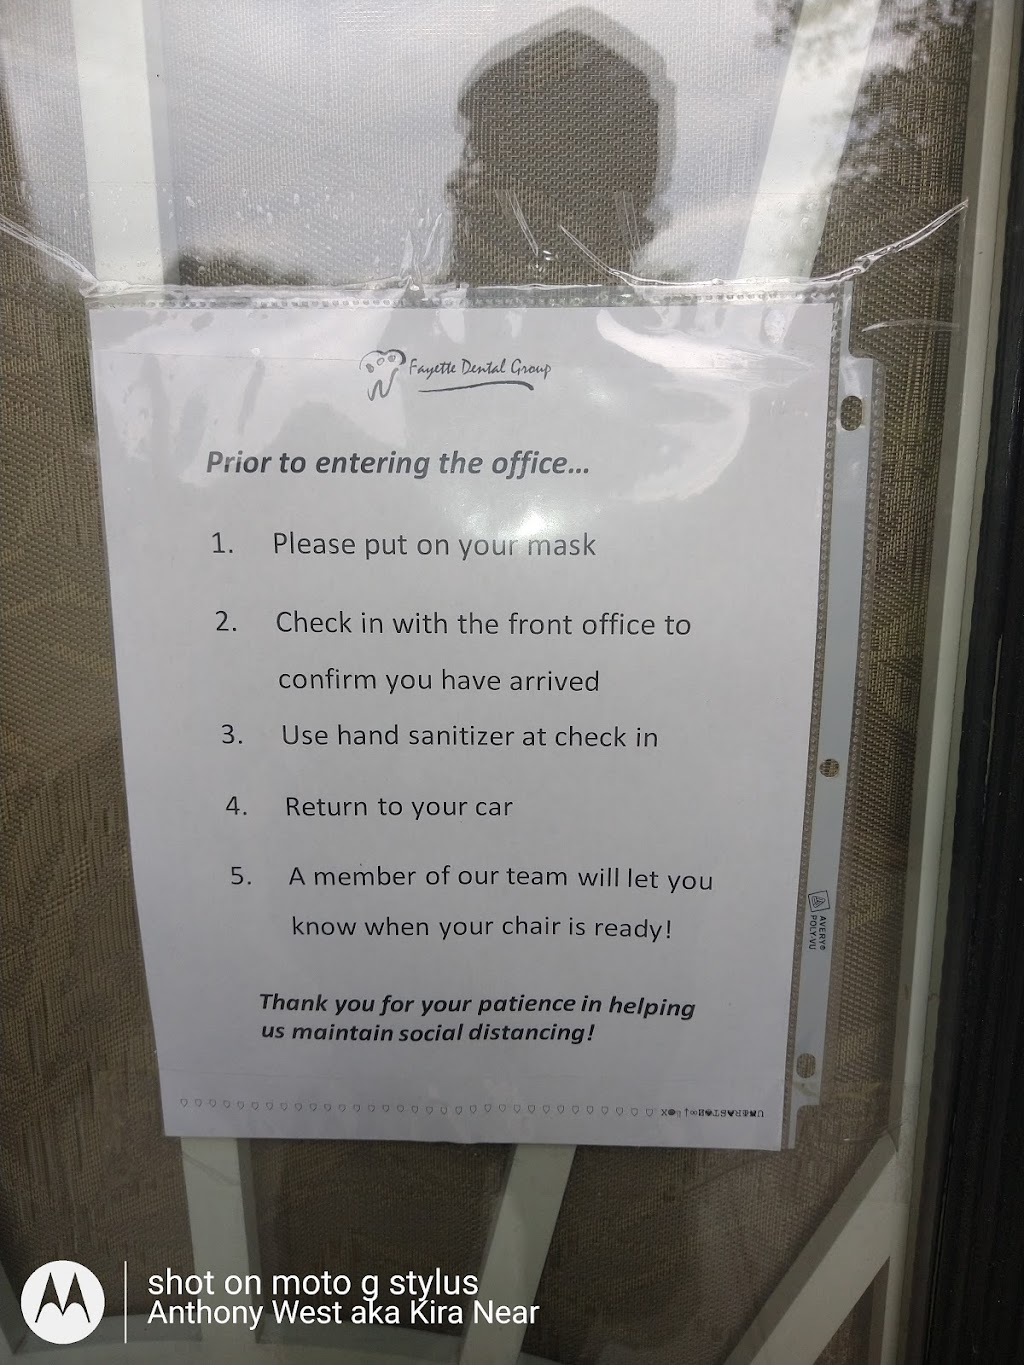 Fayette Dental Group
Prior to entering the office...
1. Please put on your mask
2. Check in with the front office to
confirm you have arrived
3. Use hand sanitizer at check in
4. Return to your car
5. A member of our team will let you
know when your chair is ready!
Thank you for your patience in helping
us maintain social distancing!
AVERY®
POLY-VU
shot on moto g stylus
Anthony West aka Kira Near